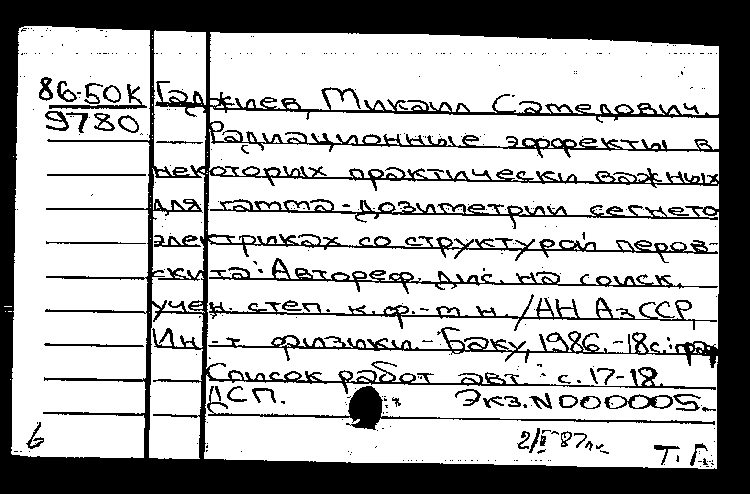 86-50К Гаджиев, Микаил Саmедович.
9780 Радиационные эффекты в
некоторых практически важных
для гамма-дозиметрии сегнето
электриках со структурой перов-
скита: Автореф. дис. на соиск.
учен. степ. к.ф.-м.н. /АН АзССР,
Ин-т физики.-Баку, 1986.-18с.:граф
Список работ авт.: с.17-18.
ДСП. Экз.N000005.
6 2/II 87
Т.Г.